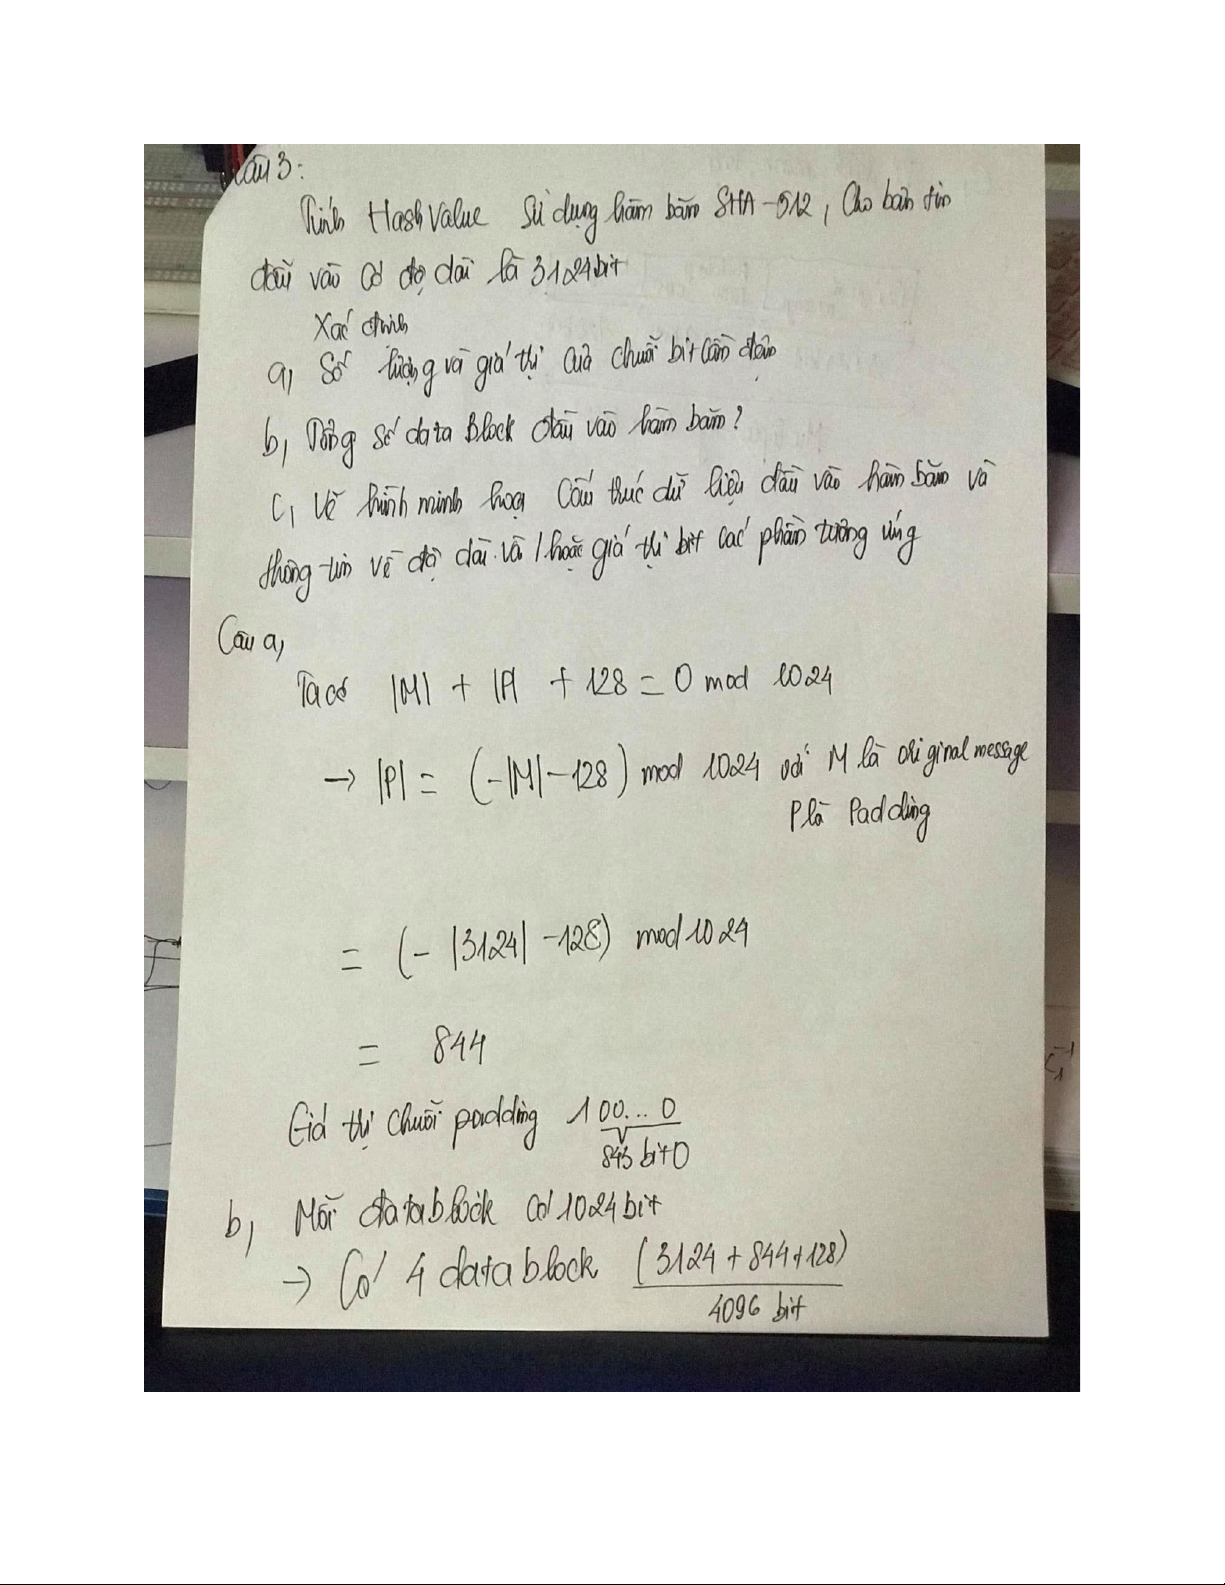 Câu 3:
Tính Hash Value sử dụng hàm băm SHA-512, Cho bản tin
đầu vào có độ dài là 3124 bit
Xác định
a, Số lượng và giá trị của chuỗi bit cần độn
b, Tổng số data Block đầu vào hàm băm?
c, Vẽ hình minh họa cấu trúc dữ liệu đầu vào hàm băm và
thông tin về độ dài và / hoặc giá trị bit các phần tương ứng
Câu a,
Ta có |M| + |P| + 128 = 0 mod 1024
→ |P| = (-|M| - 128) mod 1024 với M là original message
P là Padding
= (- |3124| - 128) mod 1024
= 844
Giá trị chuỗi padding 1 00... 0
843 bit 0
b, Mỗi datablock có 1024 bit
→ Có 4 data block (3124 + 844 + 128)
4096 bit